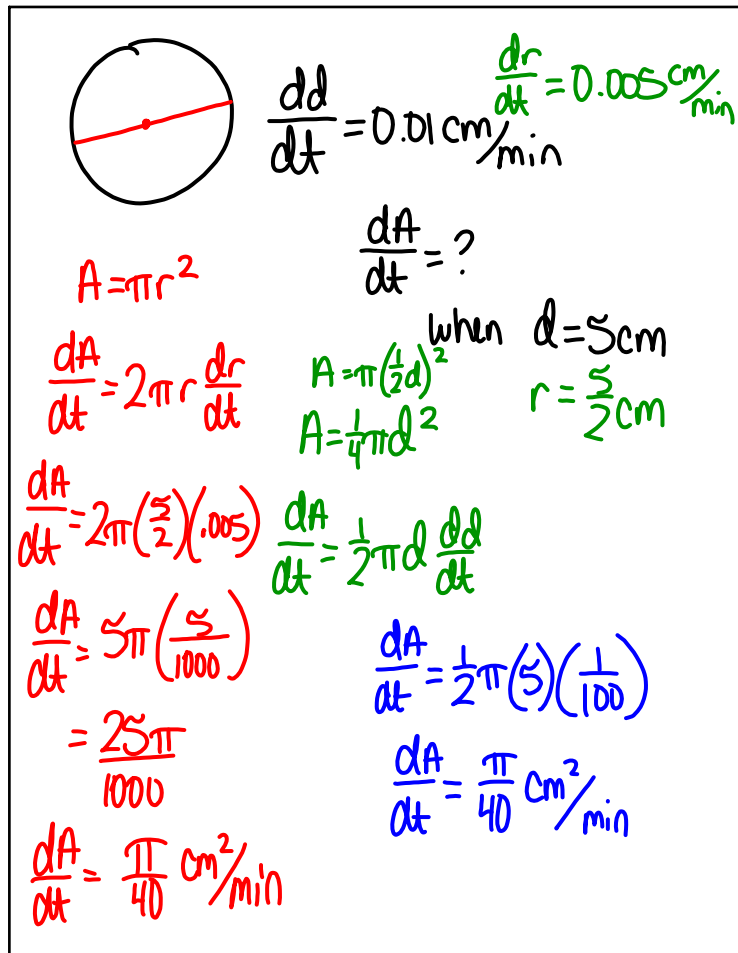 dd/dt = 0.01 cm/min
dr/dt = 0.005 cm/min
dA/dt = ?
when d = 5cm
r = 5/2 cm
A = πr²
dA/dt = 2πr dr/dt
dA/dt = 2π(5/2)(.005)
dA/dt = 5π(5/1000)
= 25π/1000
dA/dt = π/40 cm²/min
A = π(½d)²
A = ¼πd²
dA/dt = ½πd dd/dt
dA/dt = ½π(5)(1/100)
dA/dt = π/40 cm²/min